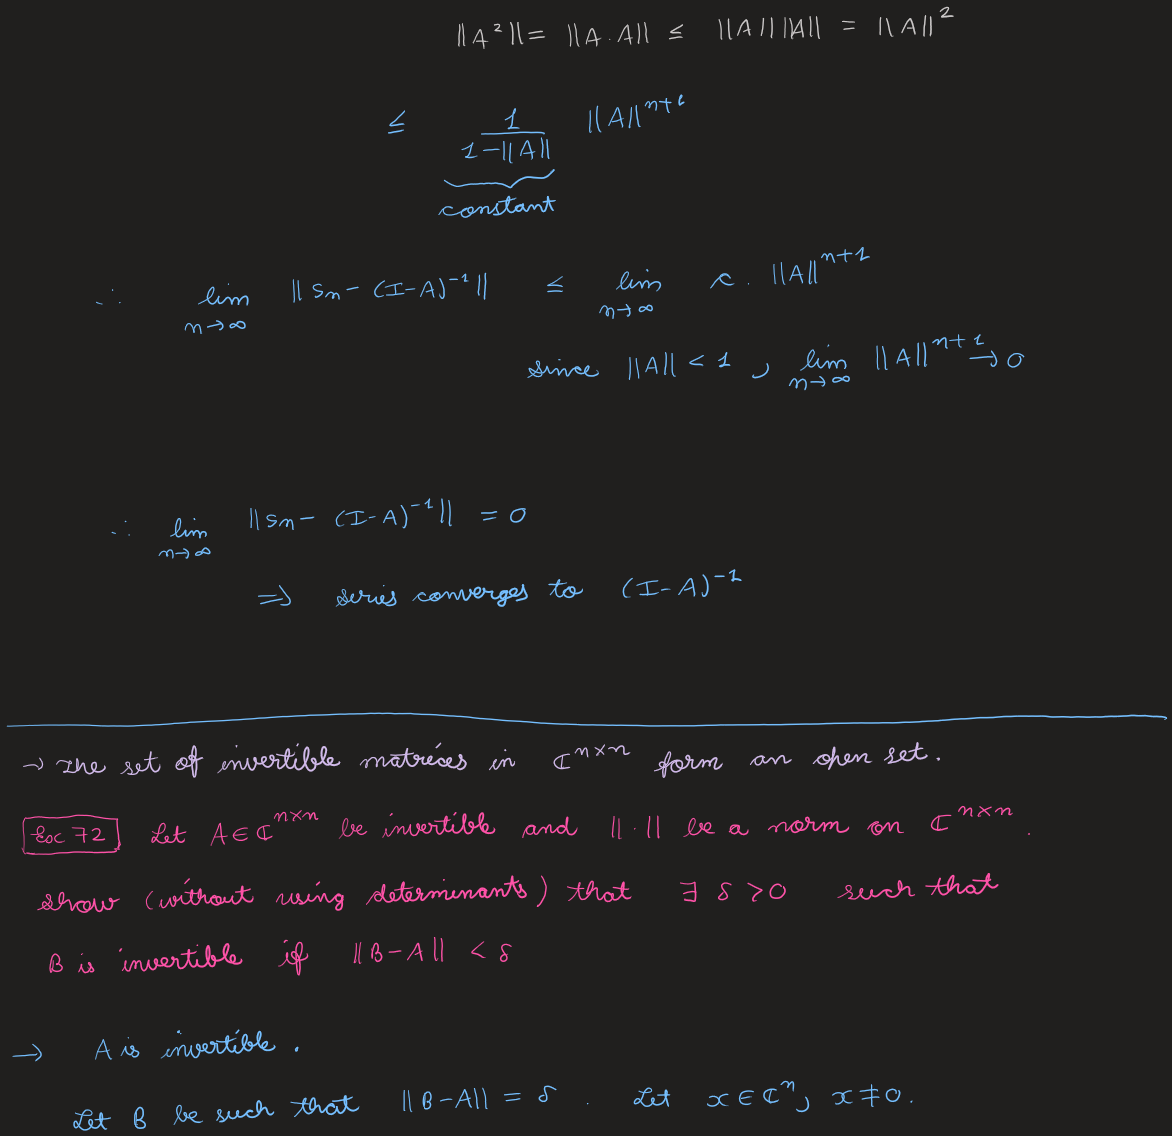 ||A²|| = ||A·A|| ≤ ||A|| ||A|| = ||A||²
≤ 1/(1-||A||) ||A||ⁿ⁺¹
constant
∴ lim n→∞ ||Sn - (I-A)⁻¹|| ≤ lim n→∞ c. ||A||ⁿ⁺¹
since ||A|| < 1, lim n→∞ ||A||ⁿ⁺¹ → 0
∴ lim n→∞ ||Sn - (I-A)⁻¹|| = 0
⇒ series converges to (I-A)⁻¹
→ The set of invertible matrices in ℂⁿˣⁿ form an open set.
Exc 72 Let A ∈ ℂⁿˣⁿ be invertible and ||·|| be a norm on ℂⁿˣⁿ.
show (without using determinants) that ∃ δ > 0 such that
B is invertible if ||B-A|| < δ
→ A is invertible.
Let B be such that ||B-A|| = δ. Let x ∈ ℂⁿ, x ≠ 0.